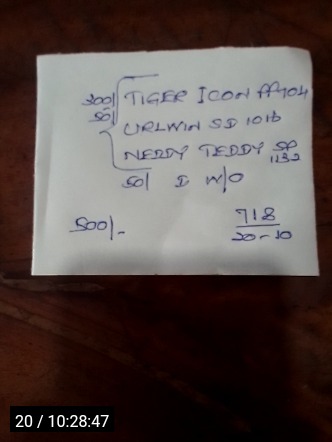 300/ TIGER ICON PP104
50/ URLWIN SD 1016
NEDDY TEDDY SP 1132
50/ D W/O
500/- 718
20-10
20 / 10:28:47